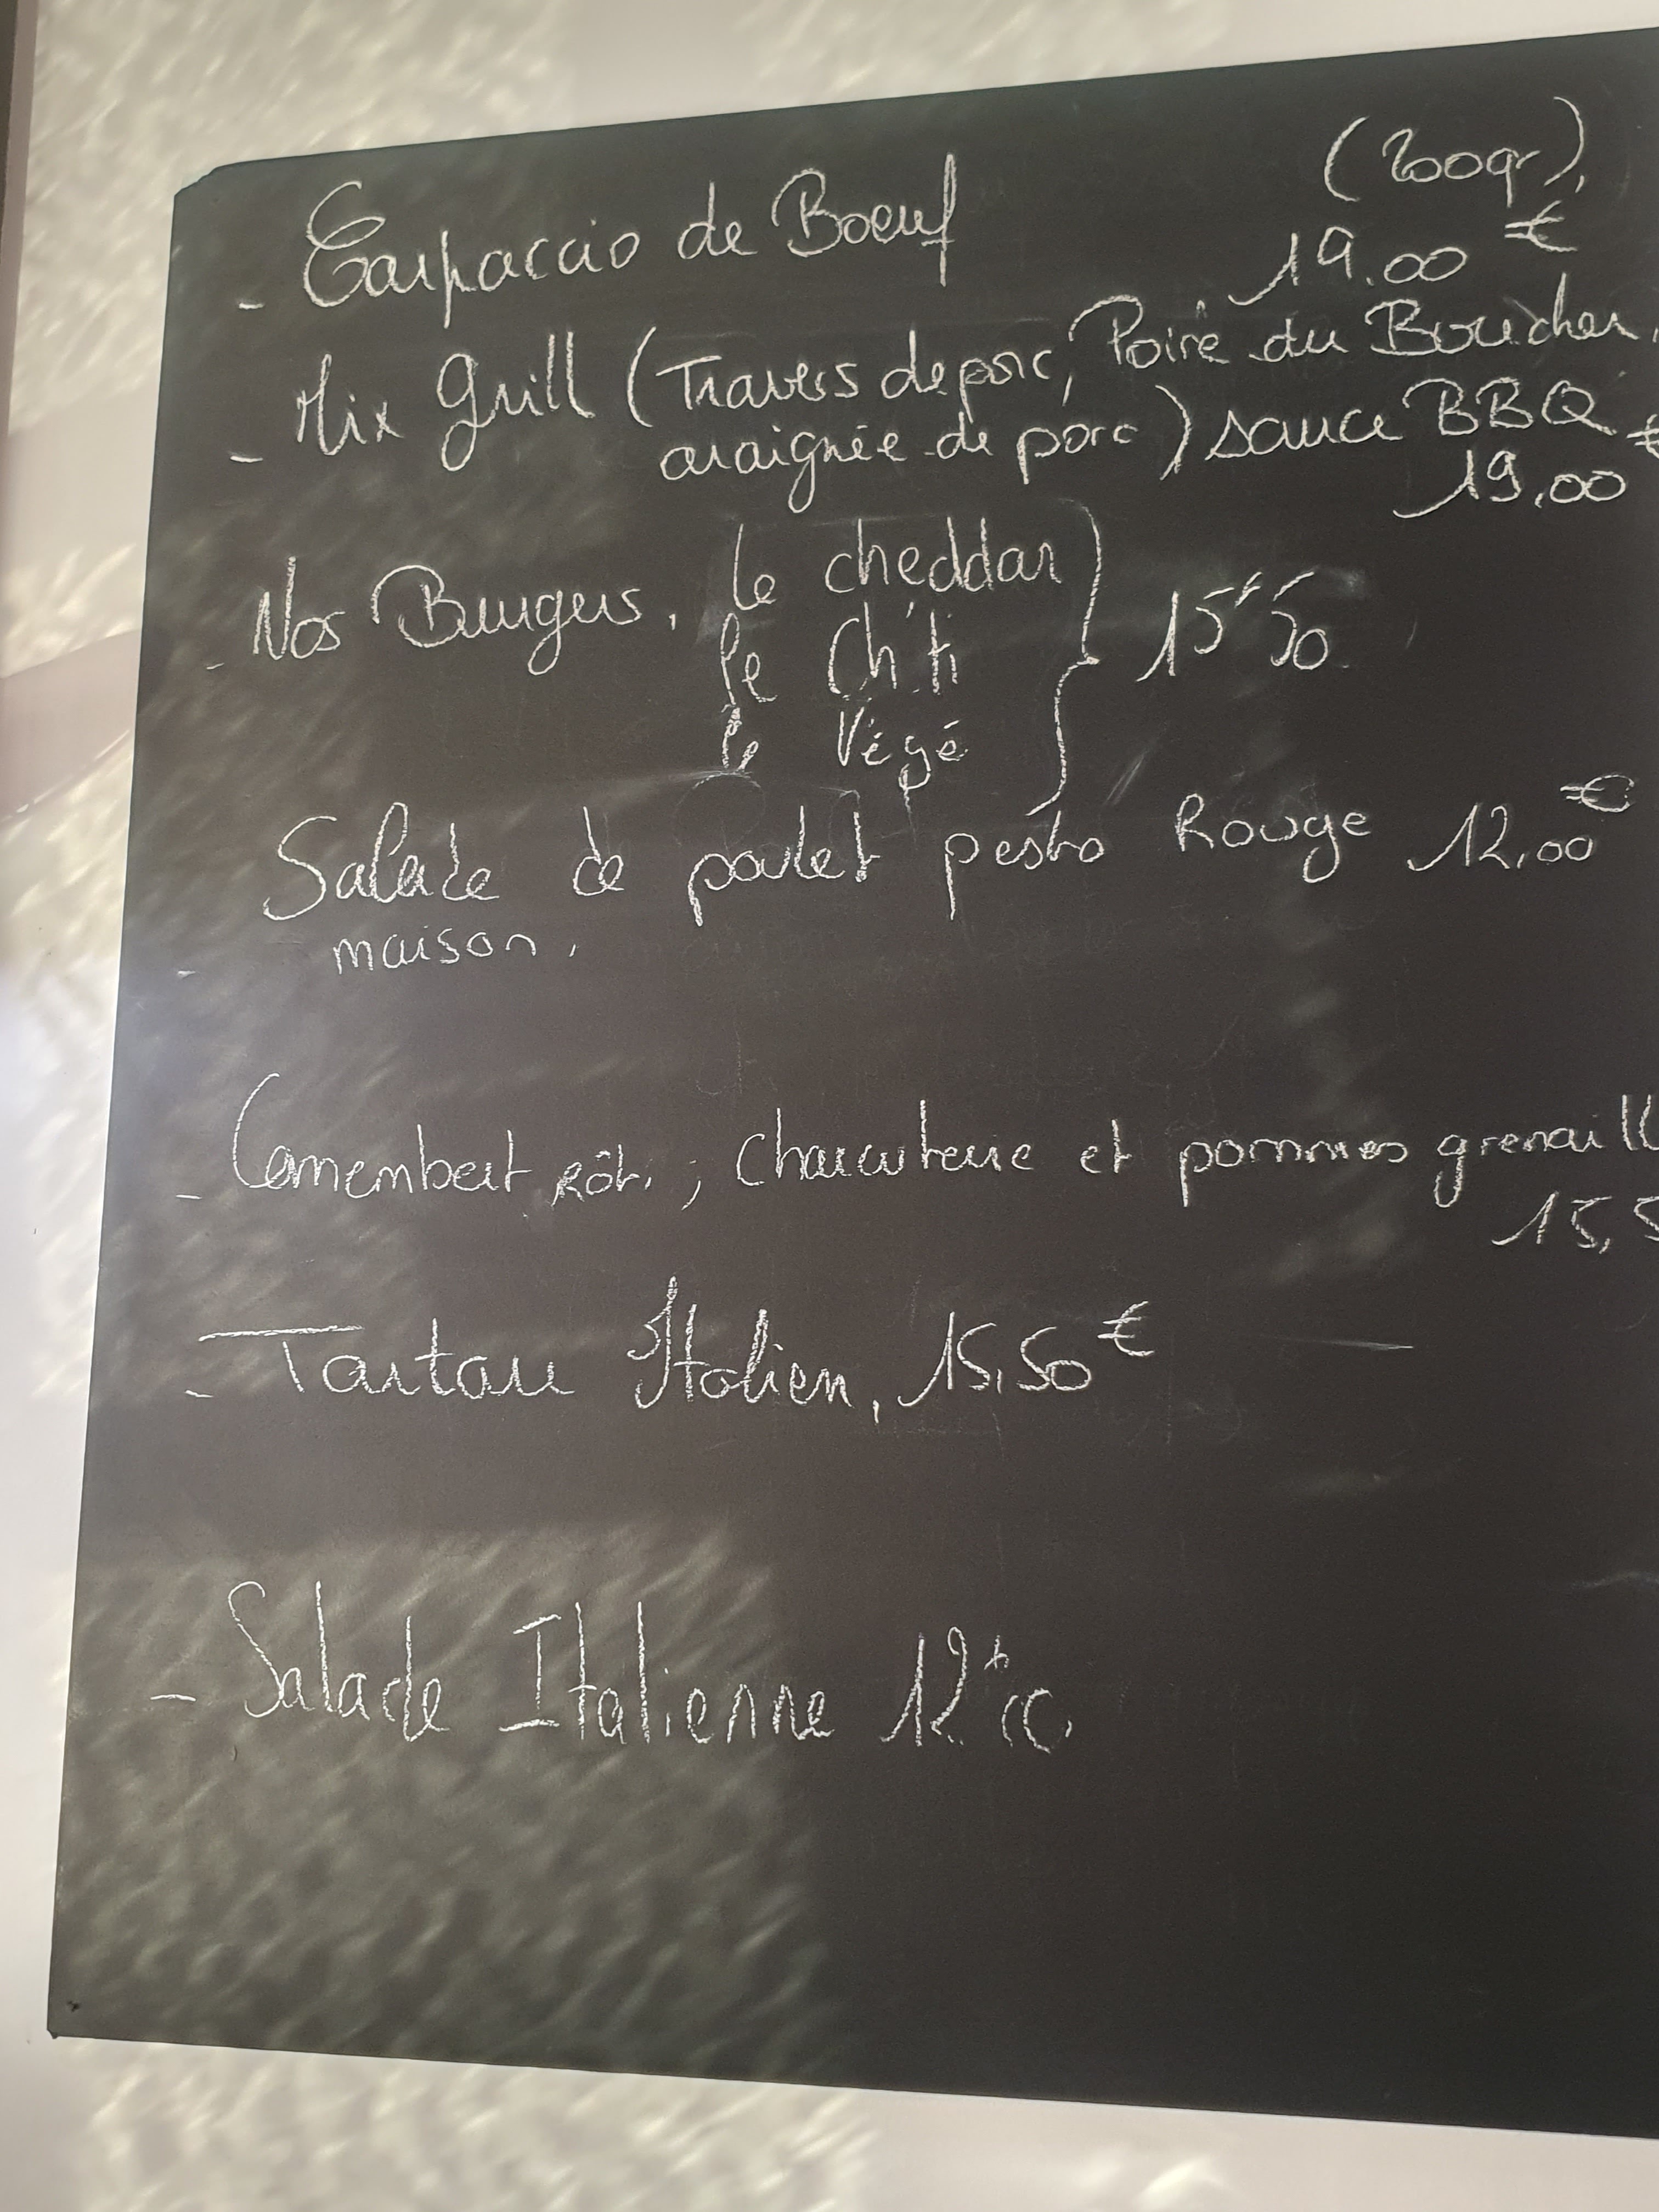 (200gr),
- Carpaccio de Boeuf 19.00 €
- Mix Grill (Travers de porc, Poire du Boucher,
araignée de porc) sauce BBQ
19,00 €
- Nos Burgers, le cheddar
le Ch'ti 15€50
le Végé
Salade de poulet pesto Rouge 12,00€
- maison,
- Camembert Rôti, ; Charcuterie et pommes grenaill
15,5
- Tartare Italien, 15,50€
- Salade Italienne 12€00